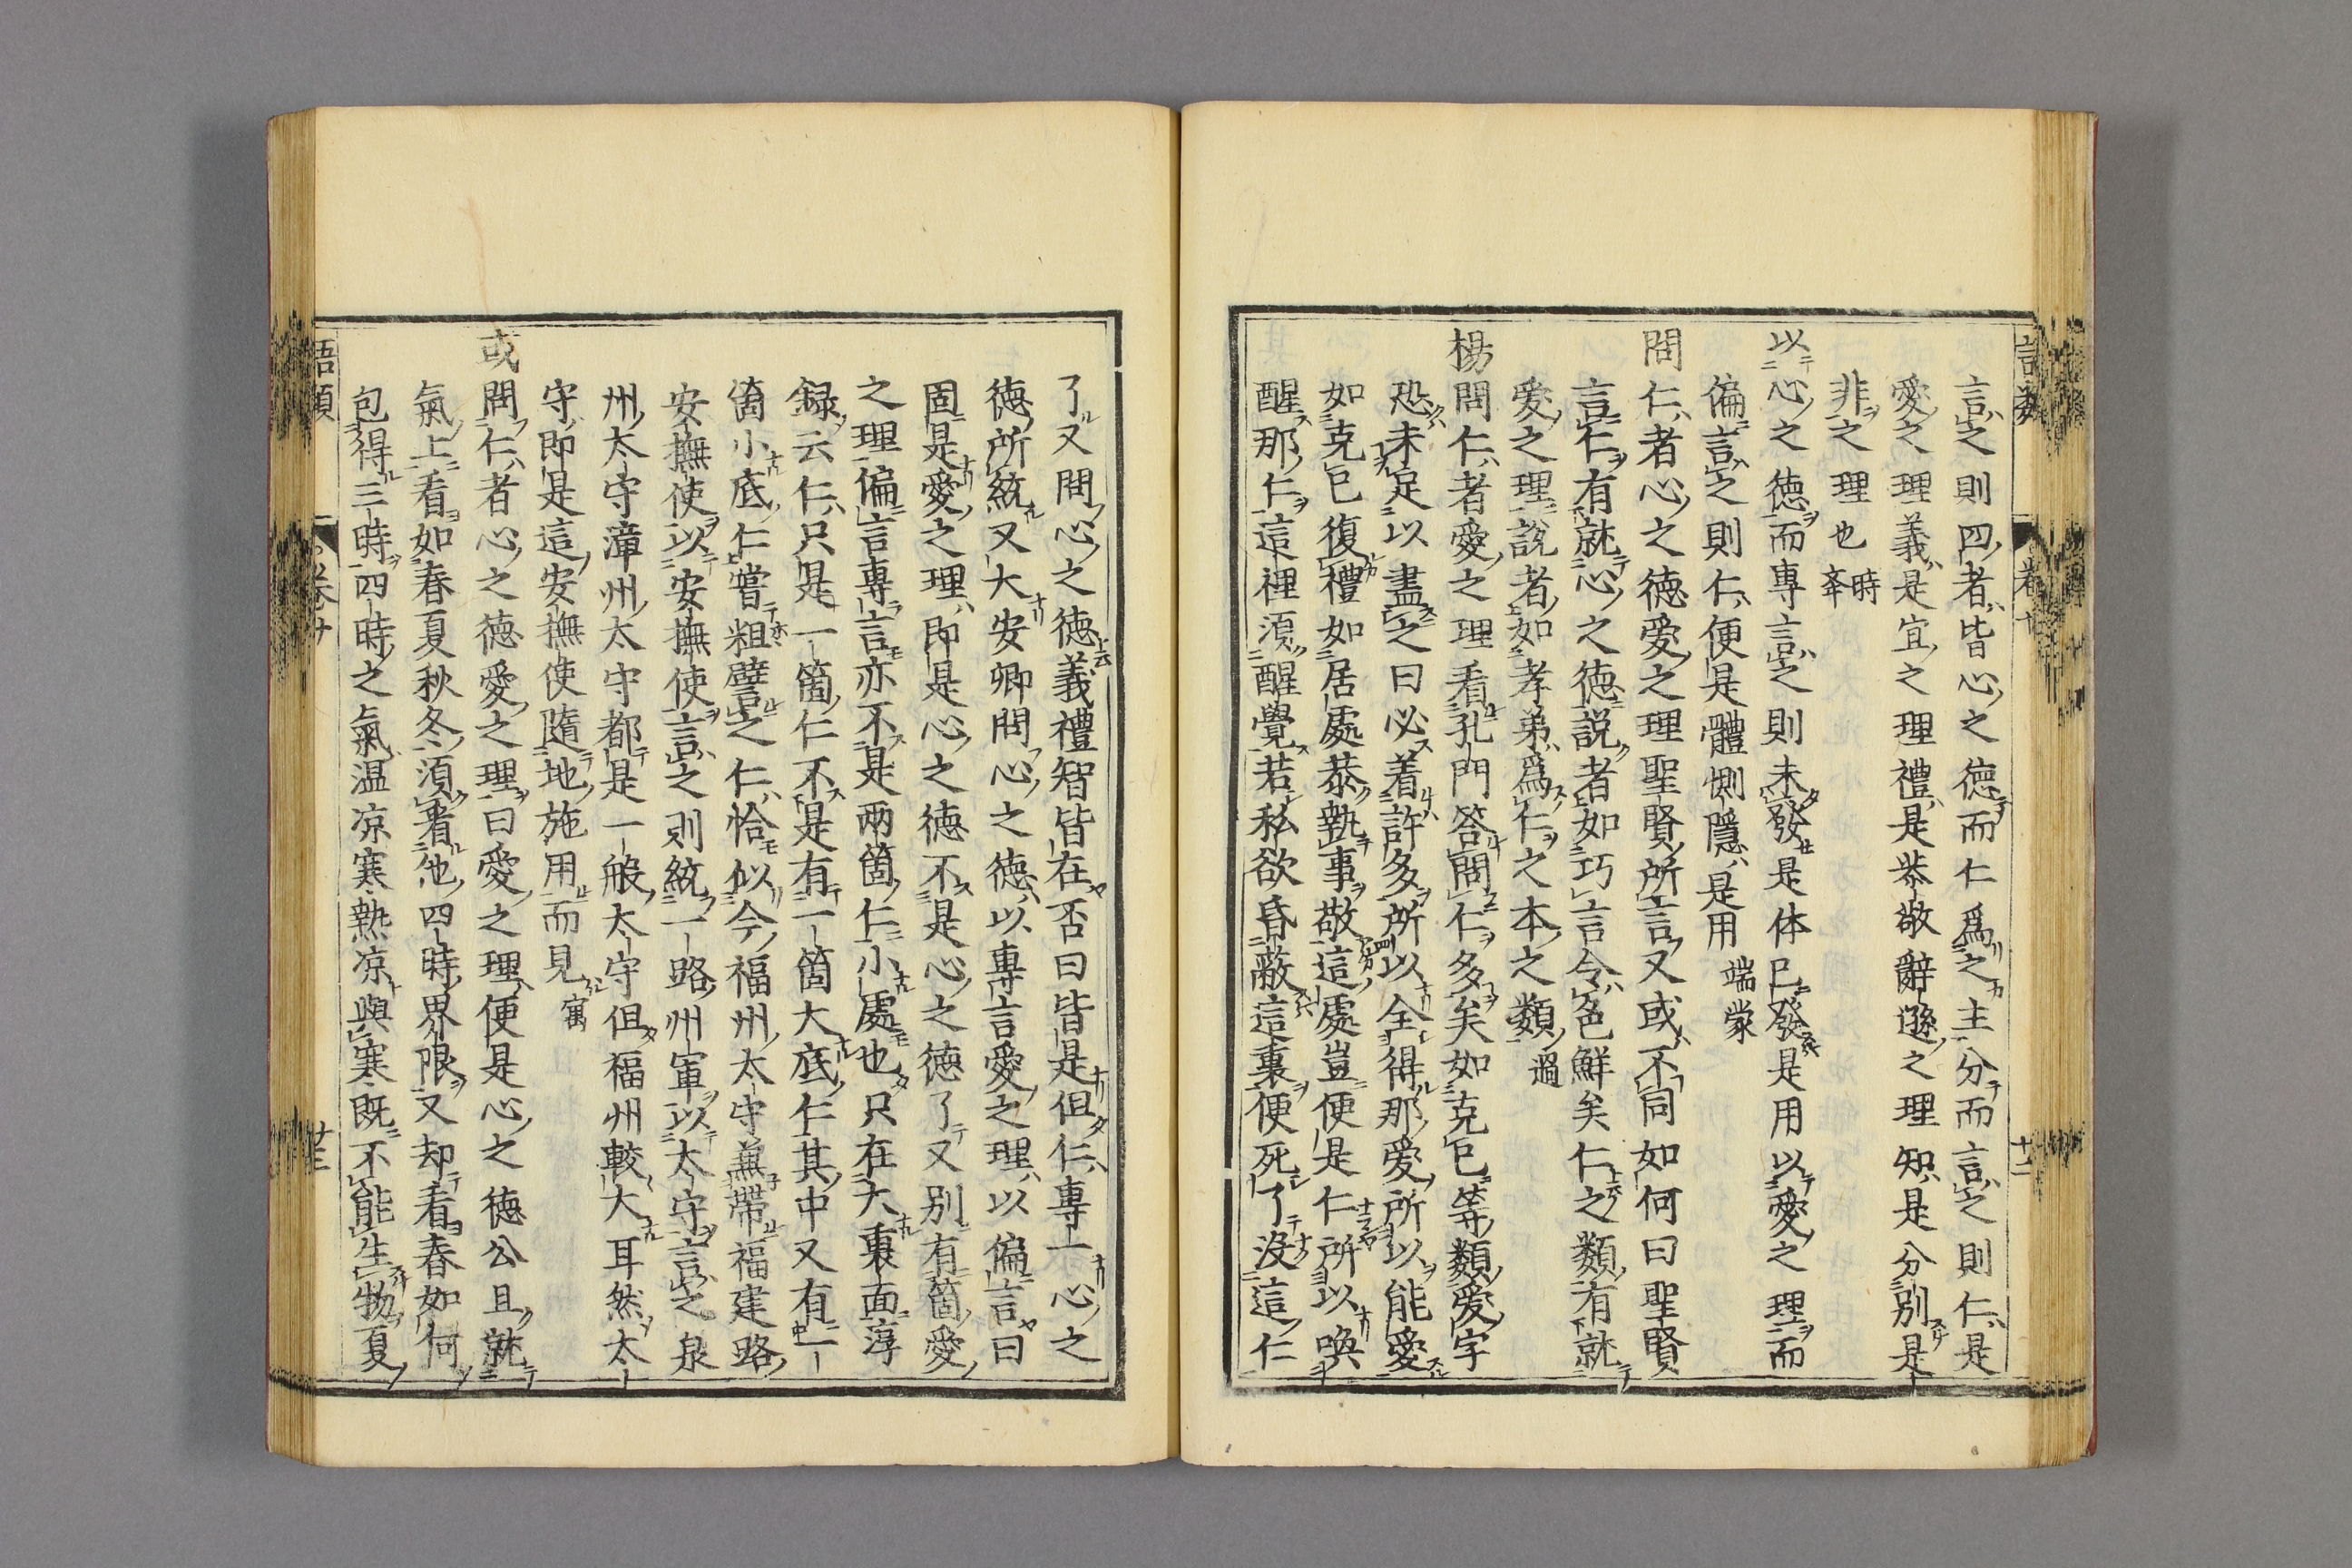 語類
卷十
十二
言之則四者皆心之德而仁爲之主分而言之則仁是
愛之理義是宜之理禮是恭敬辭遜之理知是分別是
非之理也時舉
以心之德而專言之則未發是体已發是用以愛之理而
偏言之則仁便是體惻隱是用端蒙
問仁者心之德愛之理聖賢所言又或不同如何曰聖賢
言仁有就心之德說者如巧言令色鮮矣仁之類有就
愛之理說者如孝弟爲仁之本之類過
楊問仁者愛之理看孔門答問仁多矣如克已等類愛字
恐未足以盡之曰必着許多所以全得那愛所以能愛
如克已復禮如居處恭執事敬這處豈便是仁所以喚
醒那仁這裡須醒覺若私欲昏蔽這裏便死了没這仁
了又問心之德義禮智皆在否曰皆是但仁專一心之
德所統又大安卿問心之德以專言愛之理以偏言曰
固是愛之理即是心之德不是心之德了又別有箇愛
之理偏言專言亦不是兩箇仁小處也只在大裏面淳
録云仁只是一箇仁不是有一箇大底仁其中又有一
箇小底仁嘗粗譬之仁恰似今福州太守兼帶福建路
安撫使以安撫使言之則統一路州軍以太守言之泉
州太守漳州太守都是一般太守但福州較大耳然太
守即是這安撫使隨地施用而見㝢
或問仁者心之德愛之理曰愛之理便是心之德公且就
氣上看如春夏秋冬須看他四時界限又却看春如何
包得三時四時之氣温凉寒熱凉與寒既不能生物夏
語類
卷廿
廿三